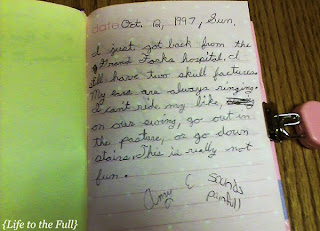 date Oct. 12, 1997, Sun.
I just got back from the
Grand Forks hospital. I
still have two skull factures.
My ears are always ringing.
I can't ride my bike,
on our swing, go out in
the pasture, or go down
stairs. This is really not
fun.
Amy C Sounds
Painfull
{Life to the Full}